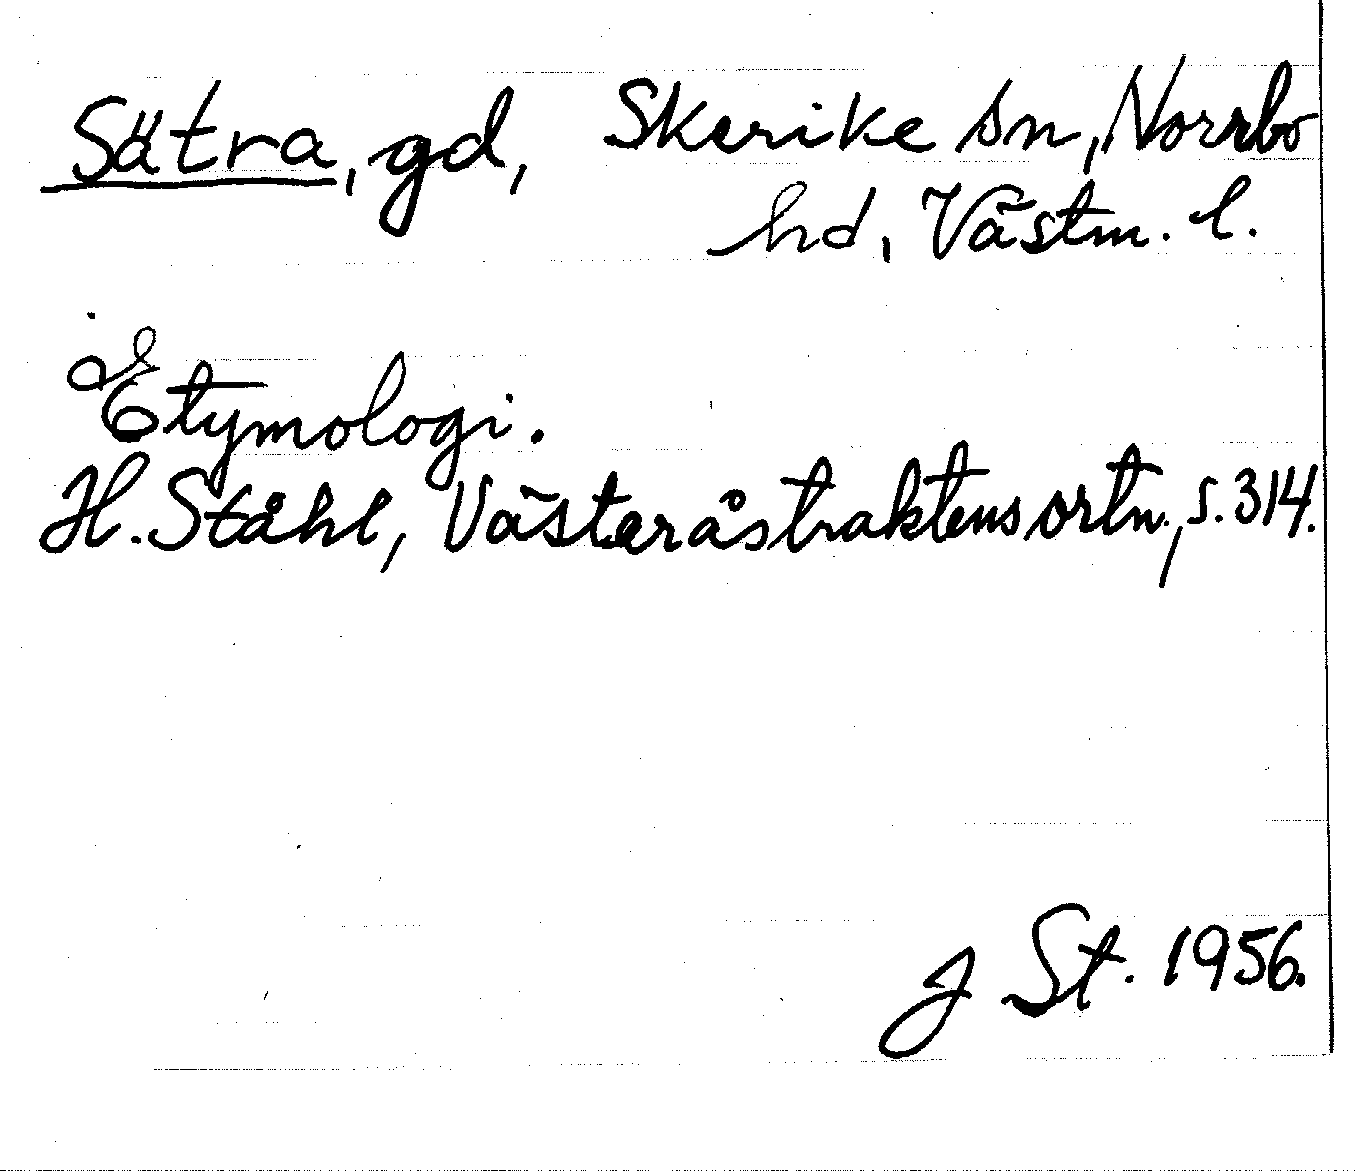 Sätra, gd, Skerike sn, Norrbo
hd, Västm. l.
Etymologi.
H. Ståhl, Västeråstraktens ortn., s. 314.
J St. 1956.